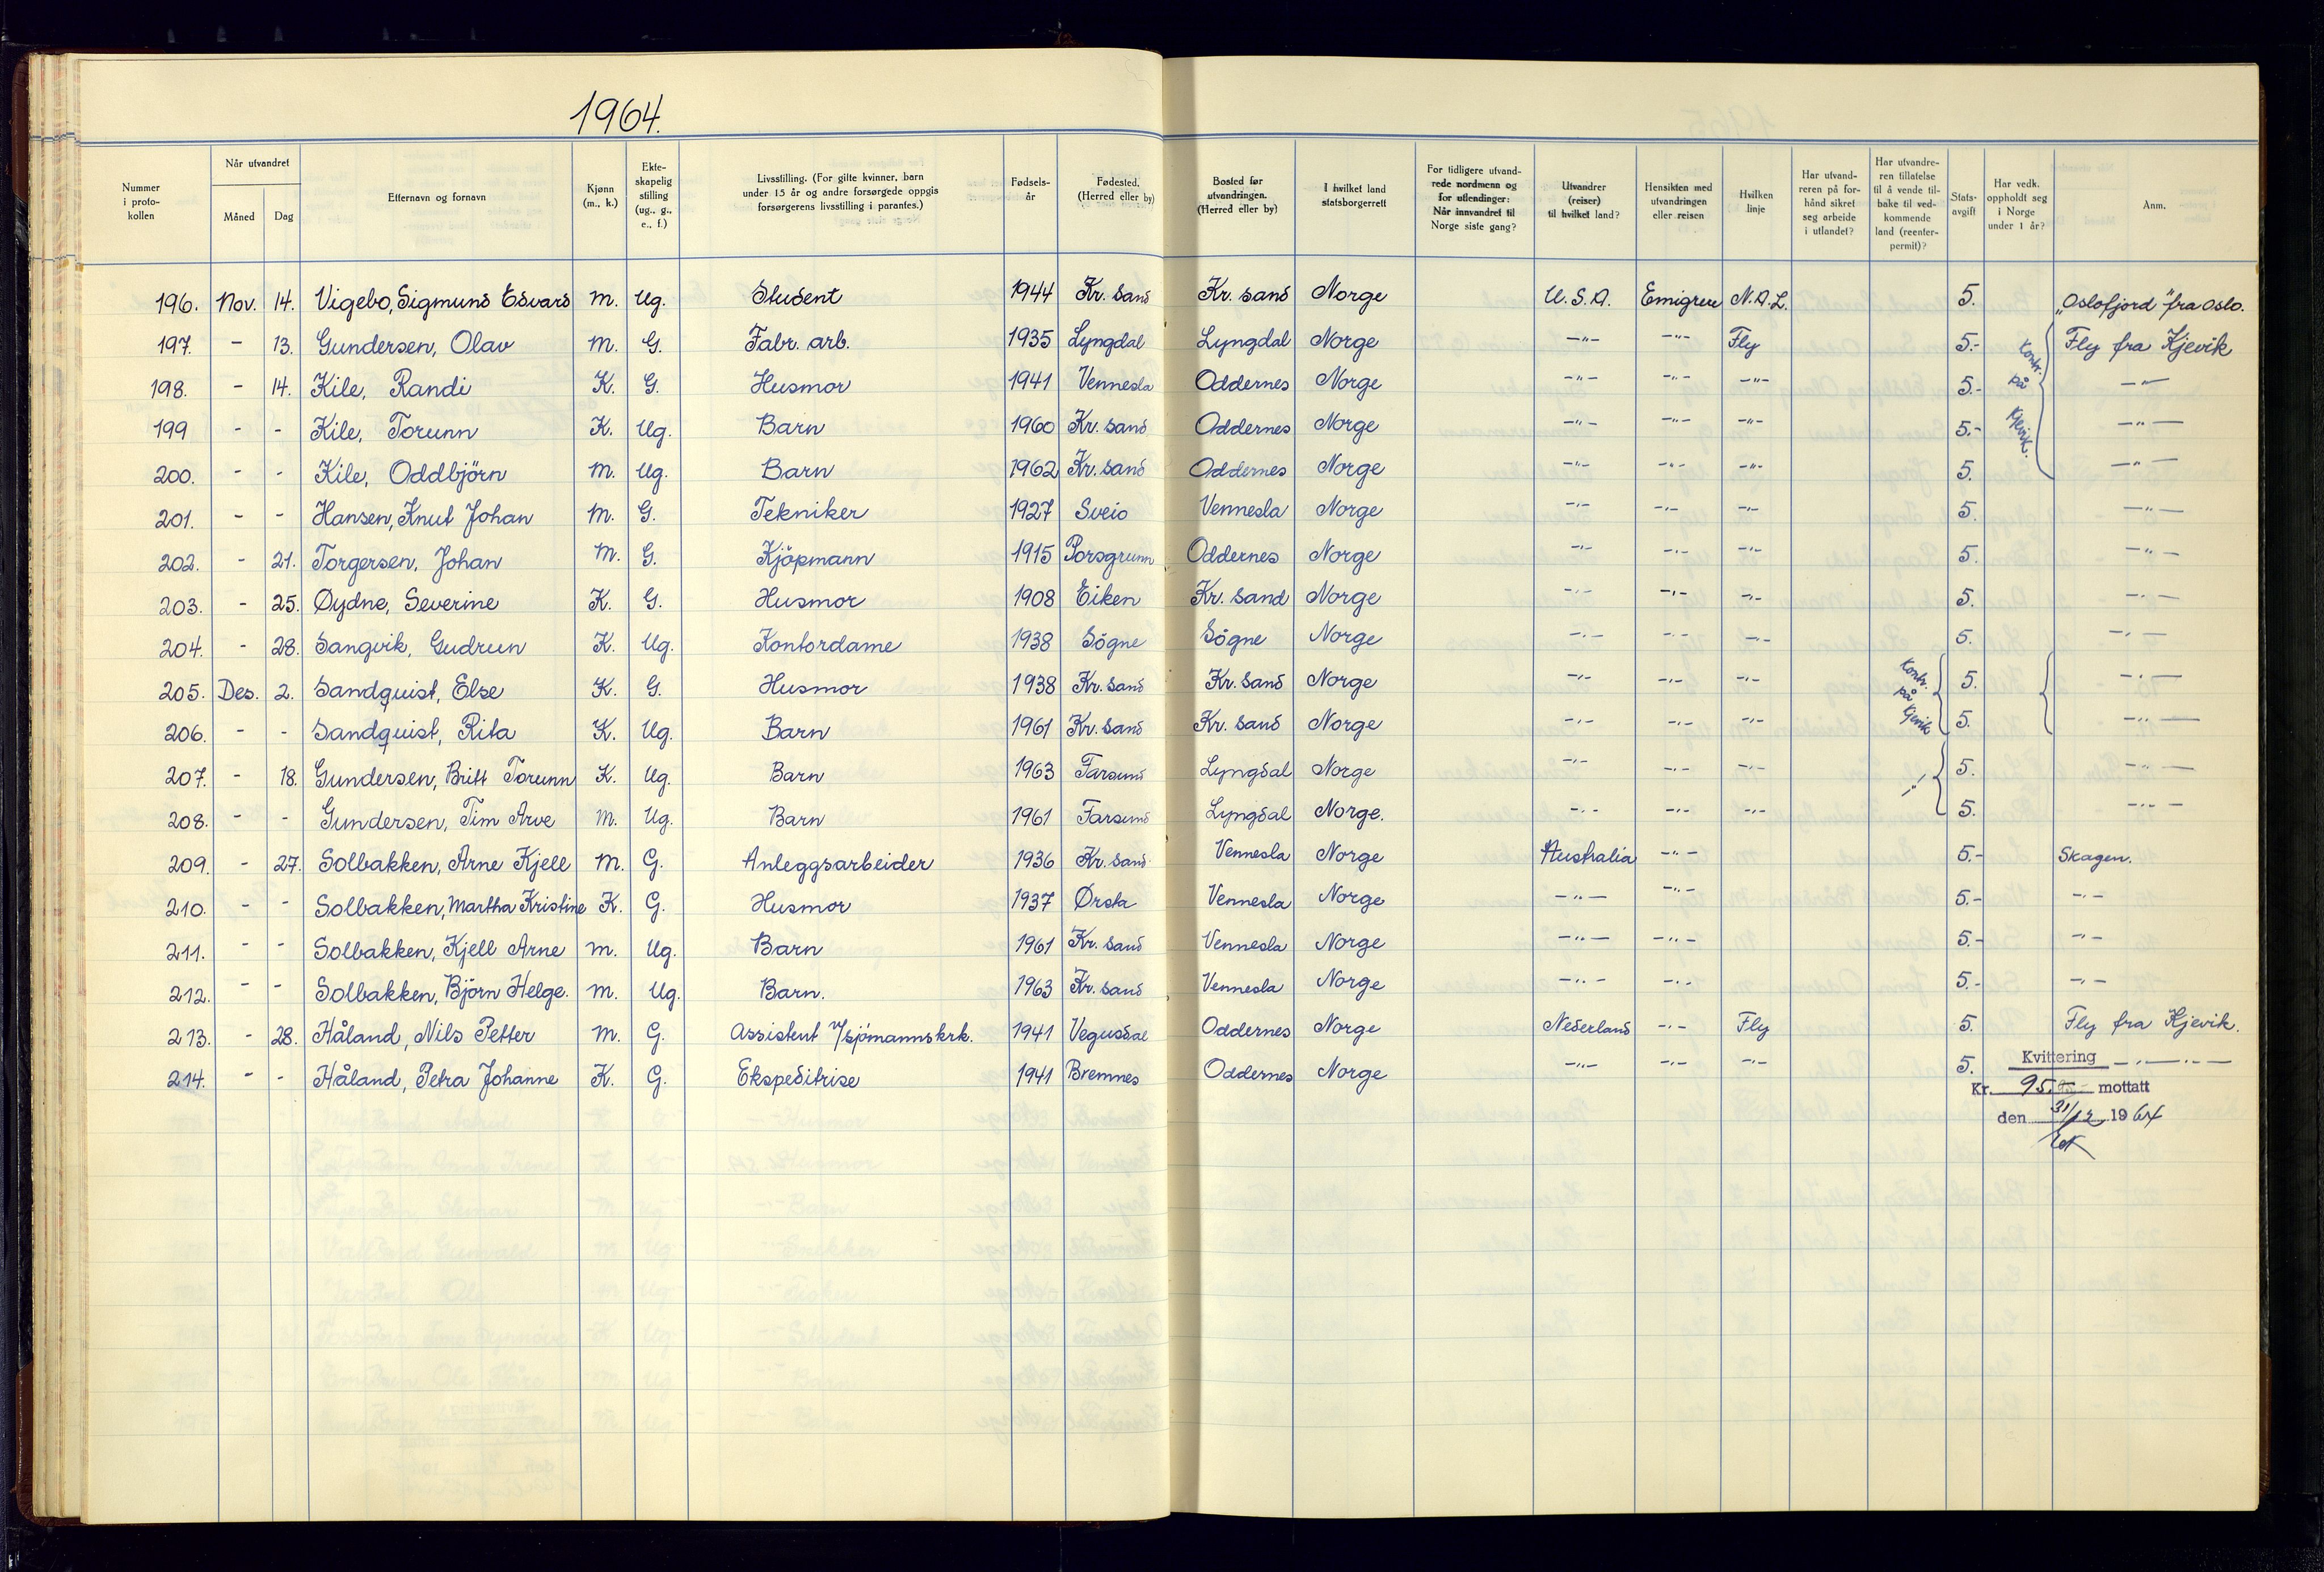 1964.
Nummer i proto- kollen | Når utvandret Måned Dag | Etternavn og fornavn | Kjønn (m., k.) | Ekte- skapelig stilling (ug., g., e., f.) | Livsstilling. (For gifte kvinner, barn under 15 år og andre forsørgede oppgis forsørgerens livsstilling i parantes.) | Fødsels- år | Fødested. (Herred eller by) | Bosted før utvandringen. (Herred eller by) | I hvilket land statsborgerrett | For tidligere utvand- rede nordmenn og for utlendinger: Når innvandret til Norge siste gang? | Utvandrer (reiser) til hvilket land? | Hensikten med utvandringen eller reisen | Hvilken linje | Har utvand- reren på for- hånd sikret seg arbeide i utlandet? | Har utvandre- ren tillatelse til å vende til- bake til ved- kommende land (reenter- permit)? | Stats- avgift | Har vedk. oppholdt seg i Norge under 1 år? | Anm.
196. Nov. 14. Vigebo, Sigmund Edvard m. Ug. Student 1944 Kr. sand Kr. sand Norge U.S.A. Emigrere N.A.L. 5. "Oslofjord" fra Oslo.
197. - 13. Gundersen, Olav m. G. Fabr. arb. 1935 Lyngdal Lyngdal Norge -"- -"- Fly 5.- Kontr. på Kjevik. Fly fra Kjevik
198. - 14. Kile, Randi K. G. Husmor 1941 Vennesla Oddernes Norge -"- -"- -"- 5.- -"-
199 - - Kile, Torunn K. Ug. Barn 1960 Kr. sand Oddernes Norge -"- -"- -"- 5.- -"-
200. - - Kile, Oddbjörn m. Ug. Barn 1962 Kr. sand Oddernes Norge -"- -"- -"- 5. -"-
201. - - Hansen, Knut Johan m. G. Tekniker 1927 Sveio Vennesla Norge -"- -"- -"- 5. -"-
202. - 21. Torgersen, Johan m. G. Kjöpmann 1915 Porsgrunn Oddernes Norge -"- -"- -"- 5. -"-
203. - 25. Øydne, Severine K. G. Husmor 1908 Eiken Kr. sand Norge -"- -"- -"- 5. -"-
204. - 28. Sangvik, Gudrun K. Ug. Kontordame 1938 Sögne Sögne Norge -"- -"- -"- 5. -"-
205. Des. 2. Sandquist, Else K. G. Husmor 1938 Kr. sand Kr. sand Norge -"- -"- -"- Kontr. på Kjevik 5. -"-
206. - - Sandquist, Rita K. Ug. Barn 1961 Kr. sand Kr. sand Norge -"- -"- -"- 5. -"-
207. - 18. Gundersen, Britt Torunn K. Ug. Barn 1963 Farsund Lyngdal Norge -"- -"- -"- -"- 5. -"-
208. - - Gundersen, Tim Arve m. Ug. Barn 1961 Farsund Lyngdal Norge. -"- -"- -"- 5. -"-
209. - 27. Solbakken, Arne Kjell m. G. Anleggsarbeider 1936 Kr. sand Vennesla Norge Australia -"- 5.- Skagen.
210. - - Solbakken, Martha Kristine K. G. Husmor 1937 Ørsta Vennesla Norge -"- -"- 5.- -"-
211. - - Solbakken, Kjell Arne m. Ug. Barn 1961 Kr. sand Vennesla Norge -"- -"- 5.- -"-
212. - - Solbakken, Björn Helge. m. Ug. Barn. 1963 Kr. sand Vennesla Norge -"- -"- 5.- -"-
213. - 28. Håland, Nils Petter m. G. Assistent v/sjömannskrk. 1941 Vegusdal Oddernes Norge Nederland -"- Fly 5. Fly fra Kjevik.
214. - - Håland, Petra Johanne K. G. Ekspeditrise 1941 Bremnes Oddernes Norge -"- -"- -"- 5. -"-
Kvittering
Kr. 95.- mottatt
den 31/12 1964